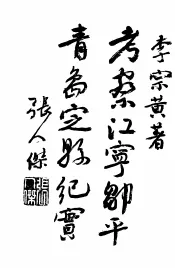 李宗黃著
考察江寧鄒平
青島定縣紀實
張人傑